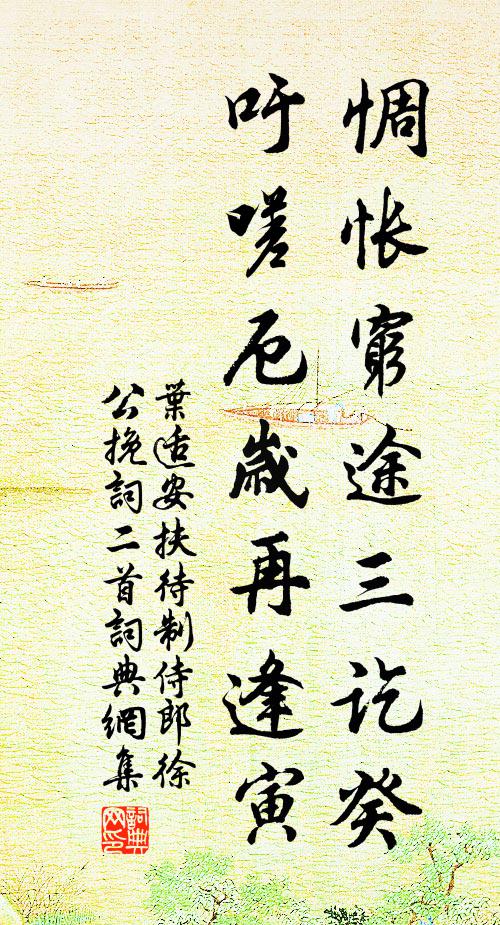 惆悵窮途三訖癸
吁嗟厄歲再逢寅
葉适安扶待制侍郎徐
公挽詞二首詞典網集
詞典
网印